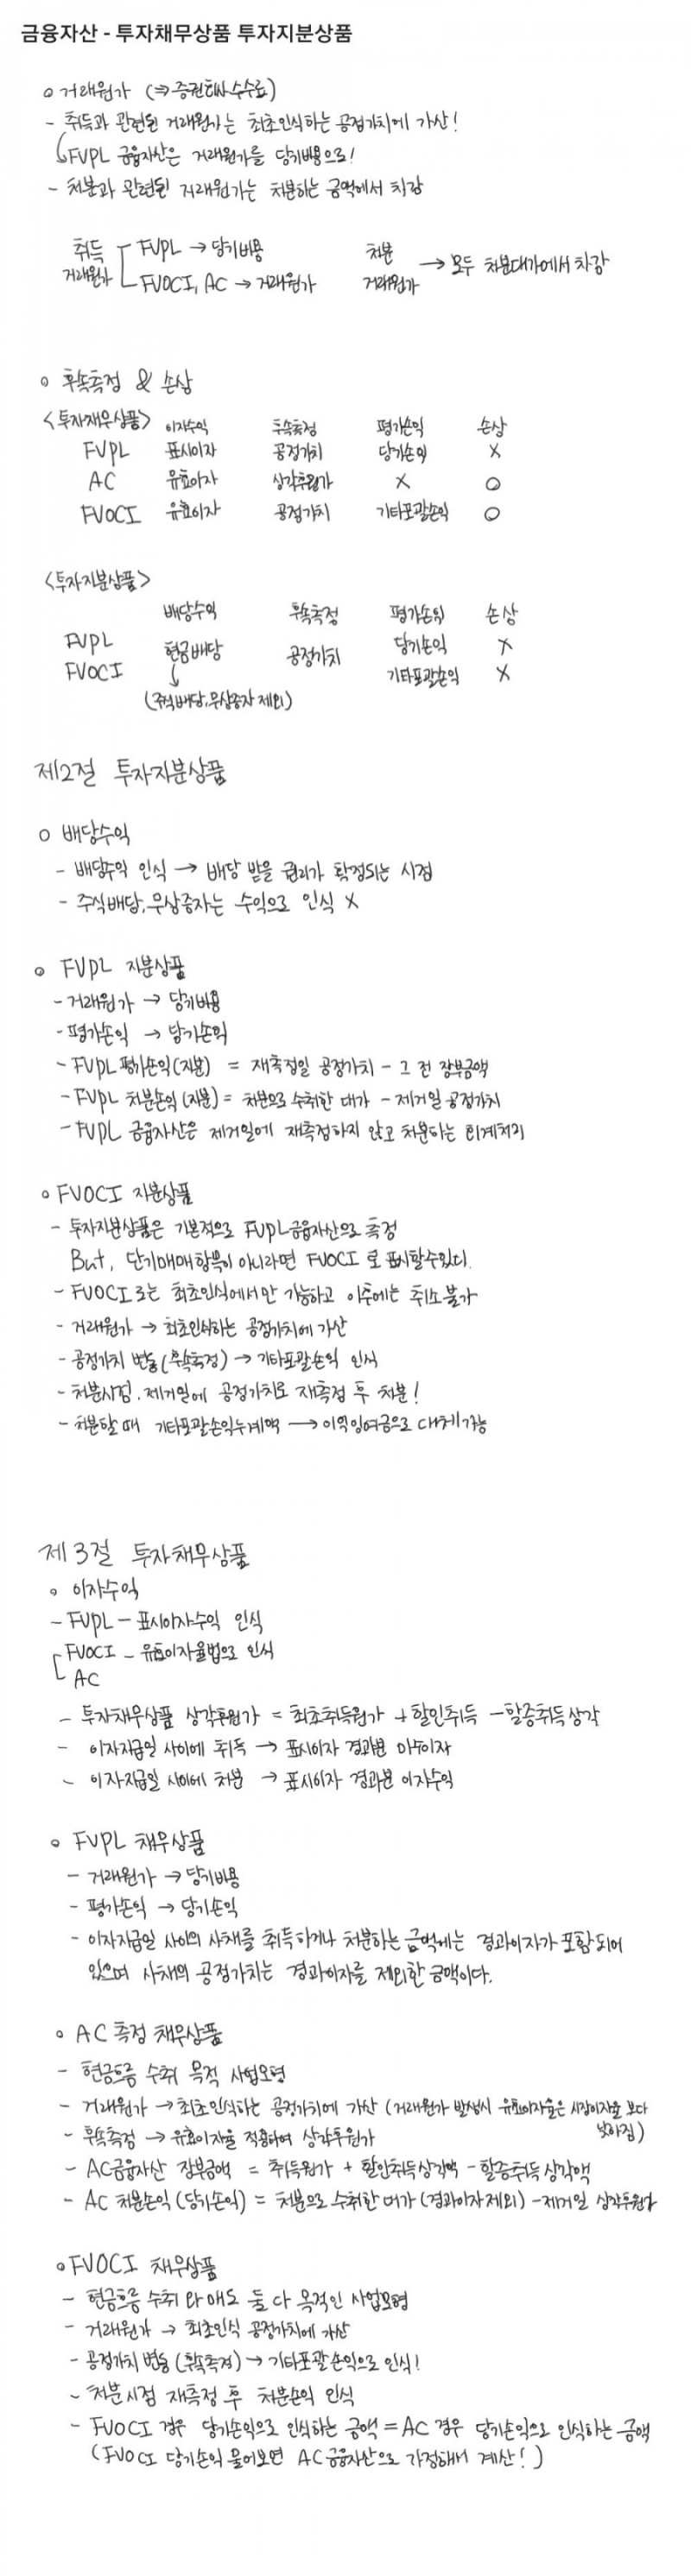 금융자산 - 투자채무상품 투자지분상품
○ 거래원가 (⇒증권회사 수수료)
- 취득과 관련된 거래원가는 최초인식하는 공정가치에 가산!
FVPL 금융자산은 거래원가를 당기비용으로!
- 처분과 관련된 거래원가는 처분하는 금액에서 차감
취득 거래원가
FVPL → 당기비용
FVOCI, AC → 거래원가
처분 거래원가 → 모두 처분대가에서 차감
○ 후속측정 & 손상
<투자채무상품> 이자수익 후속측정 평가손익 손상
FVPL 표시이자 공정가치 당기손익 X
AC 유효이자 상각후원가 X O
FVOCI 유효이자 공정가치 기타포괄손익 O
<투자지분상품>
배당수익 후속측정 평가손익 손상
FVPL 현금배당 공정가치 당기손익 X
FVOCI 기타포괄손익 X
(주식배당, 무상증자 제외)
제2절 투자지분상품
○ 배당수익
- 배당수익 인식 → 배당 받을 권리가 확정되는 시점
- 주식배당, 무상증자는 수익으로 인식 X
○ FVPL 지분상품
- 거래원가 → 당기비용
- 평가손익 → 당기손익
- FVPL 평가손익(지분) = 재측정일 공정가치 - 그 전 장부금액
- FVPL 처분손익(지분) = 처분으로 수취한 대가 - 제거일 공정가치
- FVPL 금융자산은 제거일에 재측정하지 않고 처분하는 회계처리
○ FVOCI 지분상품
- 투자지분상품은 기본적으로 FVPL금융자산으로 측정
But, 단기매매항목이 아니라면 FVOCI 로 표시할수있다.
- FVOCI로는 최초인식에서만 가능하고 이후에는 취소불가
- 거래원가 → 최초인식하는 공정가치에 가산
- 공정가치 변동(후속측정) → 기타포괄손익 인식
- 처분시점. 제거일에 공정가치로 재측정 후 처분!
- 처분할 때 기타포괄손익누계액 → 이익잉여금으로 대체가능
제3절 투자채무상품
○ 이자수익
- FVPL - 표시이자수익 인식
FVOCI - 유효이자율법으로 인식
AC
- 투자채무상품 상각후원가 = 최초취득원가 + 할인취득 - 할증취득상각
- 이자지급일 사이에 취득 → 표시이자 경과분 미수이자
- 이자지급일 사이에 처분 → 표시이자 경과분 이자수익
○ FVPL 채무상품
- 거래원가 → 당기비용
- 평가손익 → 당기손익
- 이자지급일 사이의 사채를 취득하거나 처분하는 금액에는 경과이자가 포함되어
있으며 사채의 공정가치는 경과이자를 제외한 금액이다.
○ AC 측정 채무상품
- 현금흐름 수취 목적 사업모형
- 거래원가 → 최초인식하는 공정가치에 가산 (거래원가 발생시 유효이자율은 시장이자율 보다
낮아짐)
- 후속측정 → 유효이자율 적용하여 상각후원가
- AC금융자산 장부금액 = 취득원가 + 할인취득상각액 - 할증취득상각액
- AC 처분손익 (당기손익) = 처분으로 수취한 대가 (경과이자제외) - 제거일 상각후원가
○ FVOCI 채무상품
- 현금흐름 수취 와 매도 둘 다 목적인 사업모형
- 거래원가 → 최초인식 공정가치에 가산
- 공정가치 변동 (후속측정) → 기타포괄손익으로 인식!
- 처분시점 재측정 후 처분손익 인식
- FVOCI 경우 당기손익으로 인식하는 금액 = AC 경우 당기손익으로 인식하는 금액
(FVOCI 당기손익 물어보면 AC금융자산으로 가정해서 계산!)